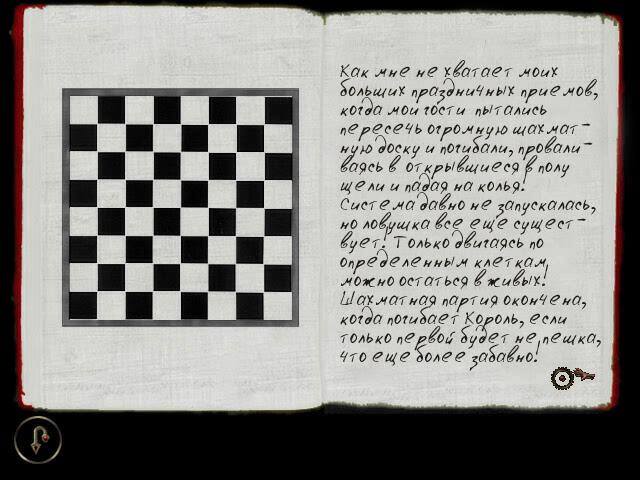 Как мне не хватает моих
больших праздничных приемов,
когда мои гости пытались
пересечь огромную шахмат-
ную доску и погибали, провали-
ваясь в открывшиеся в полу
щели и падая на колья.
Система давно не запускалась,
но ловушка все еще сущест-
вует! Только двигаясь по
определенным клеткам,
можно остаться в живых!
Шахматная партия окончена,
когда погибает Король, если
только первой будет не пешка,
что еще более забавно!